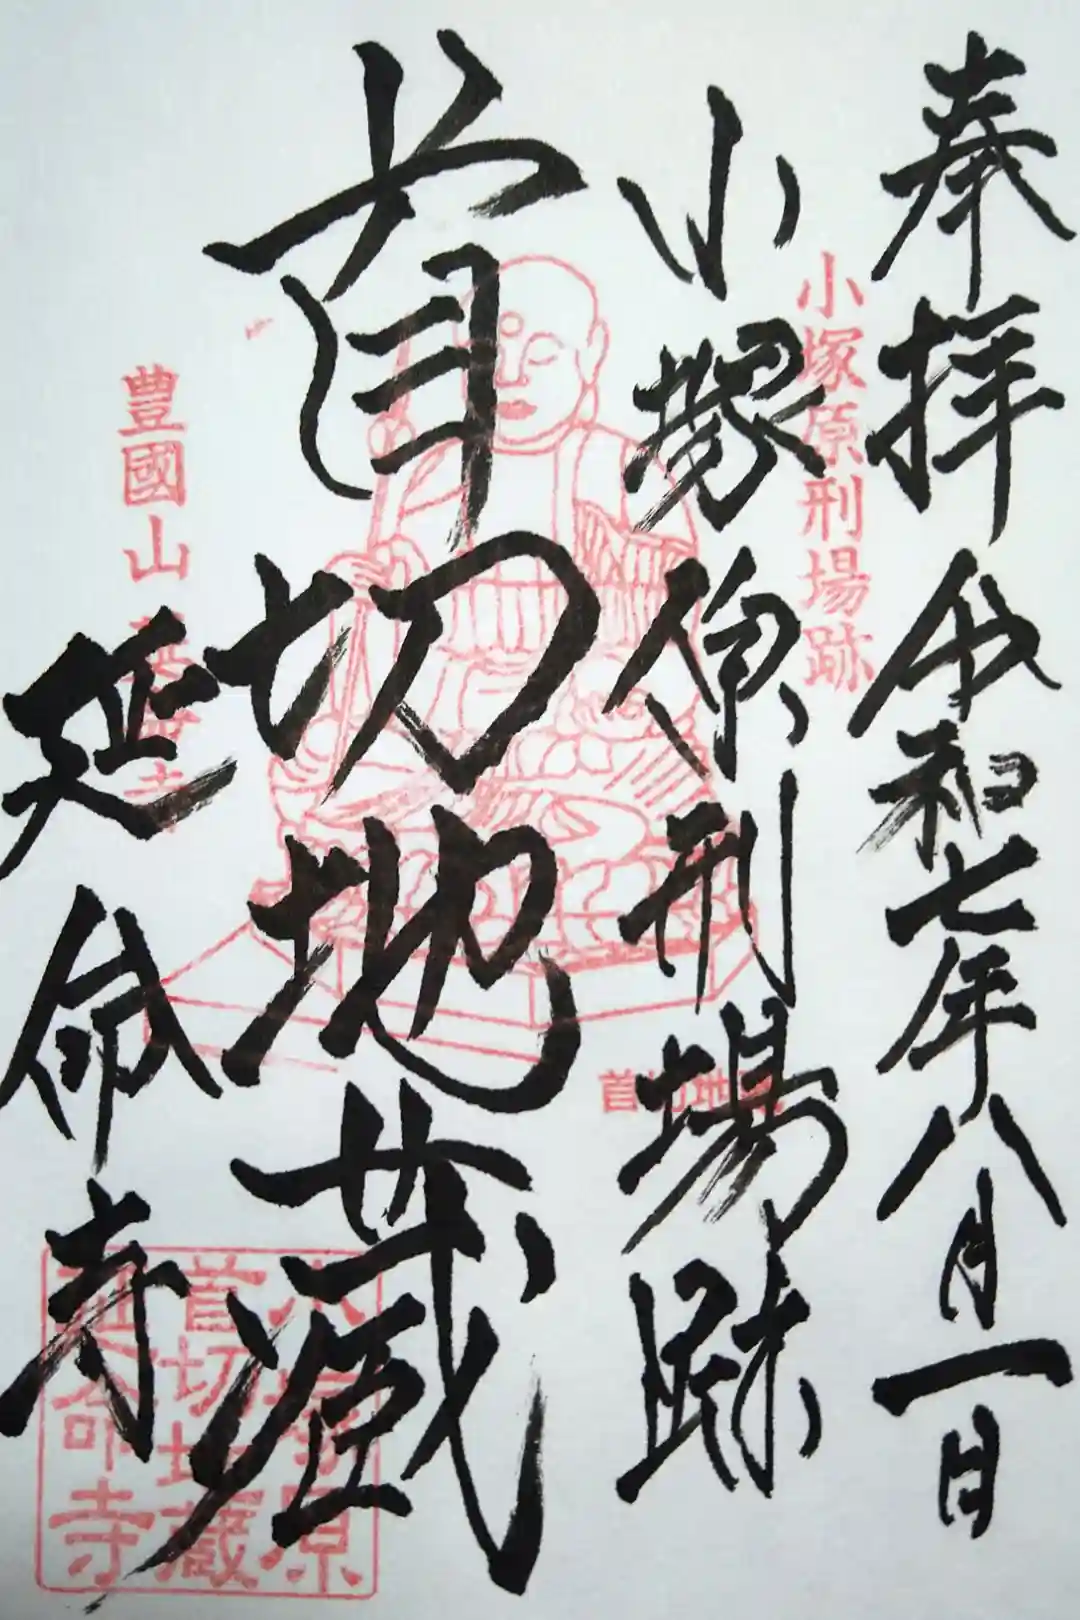 奉拝 令和七年八月一日
小塚原刑場跡
小塚原刑場跡
首切地蔵
首切地蔵
豊國山 延命寺
延命寺
小塚原
首切地蔵
延命寺